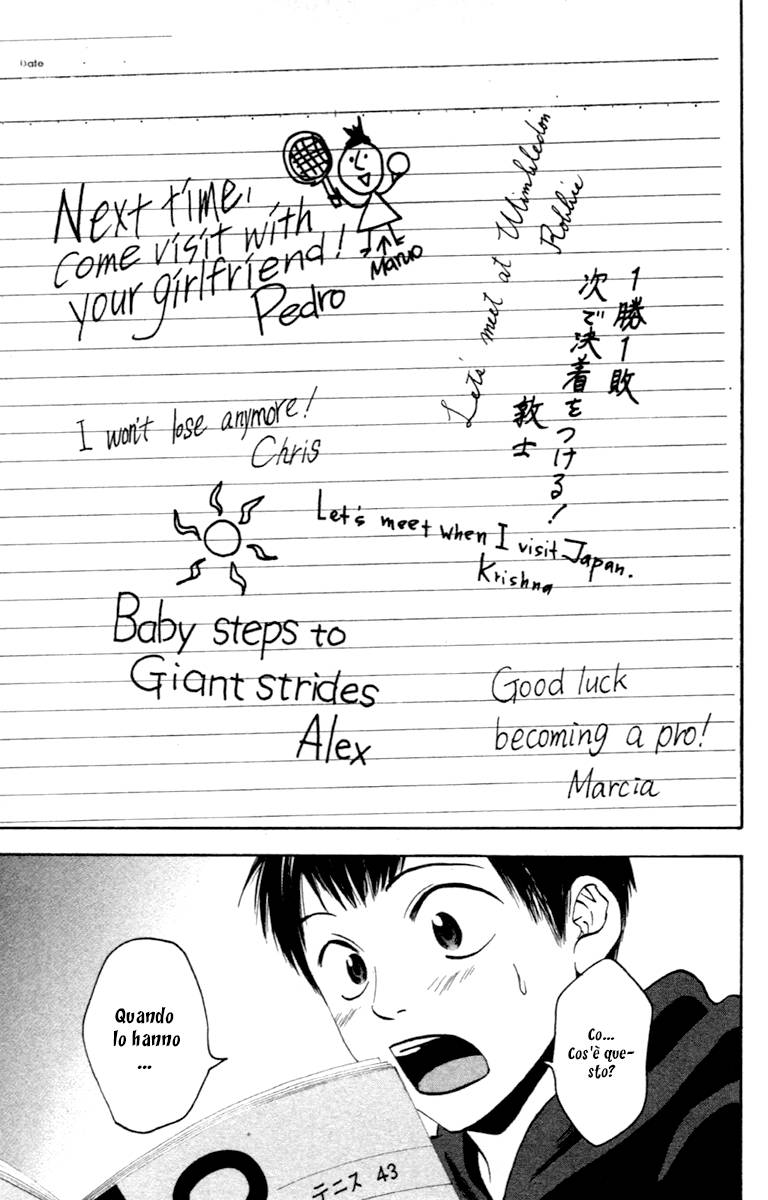 Date
Next time,
come visit with
your girlfriend!
Pedro
Maruo
Let's meet at Wimbledon
Robbie
1勝1敗
次で決着をつける!
敦士
I won't lose anymore!
Chris
Let's meet when I visit Japan.
Krishna
Baby steps to
Giant strides
Alex
Good luck
becoming a pro!
Marcia
Co...
Cos'è que-
sto?
Quando
lo hanno
...
テニス 43